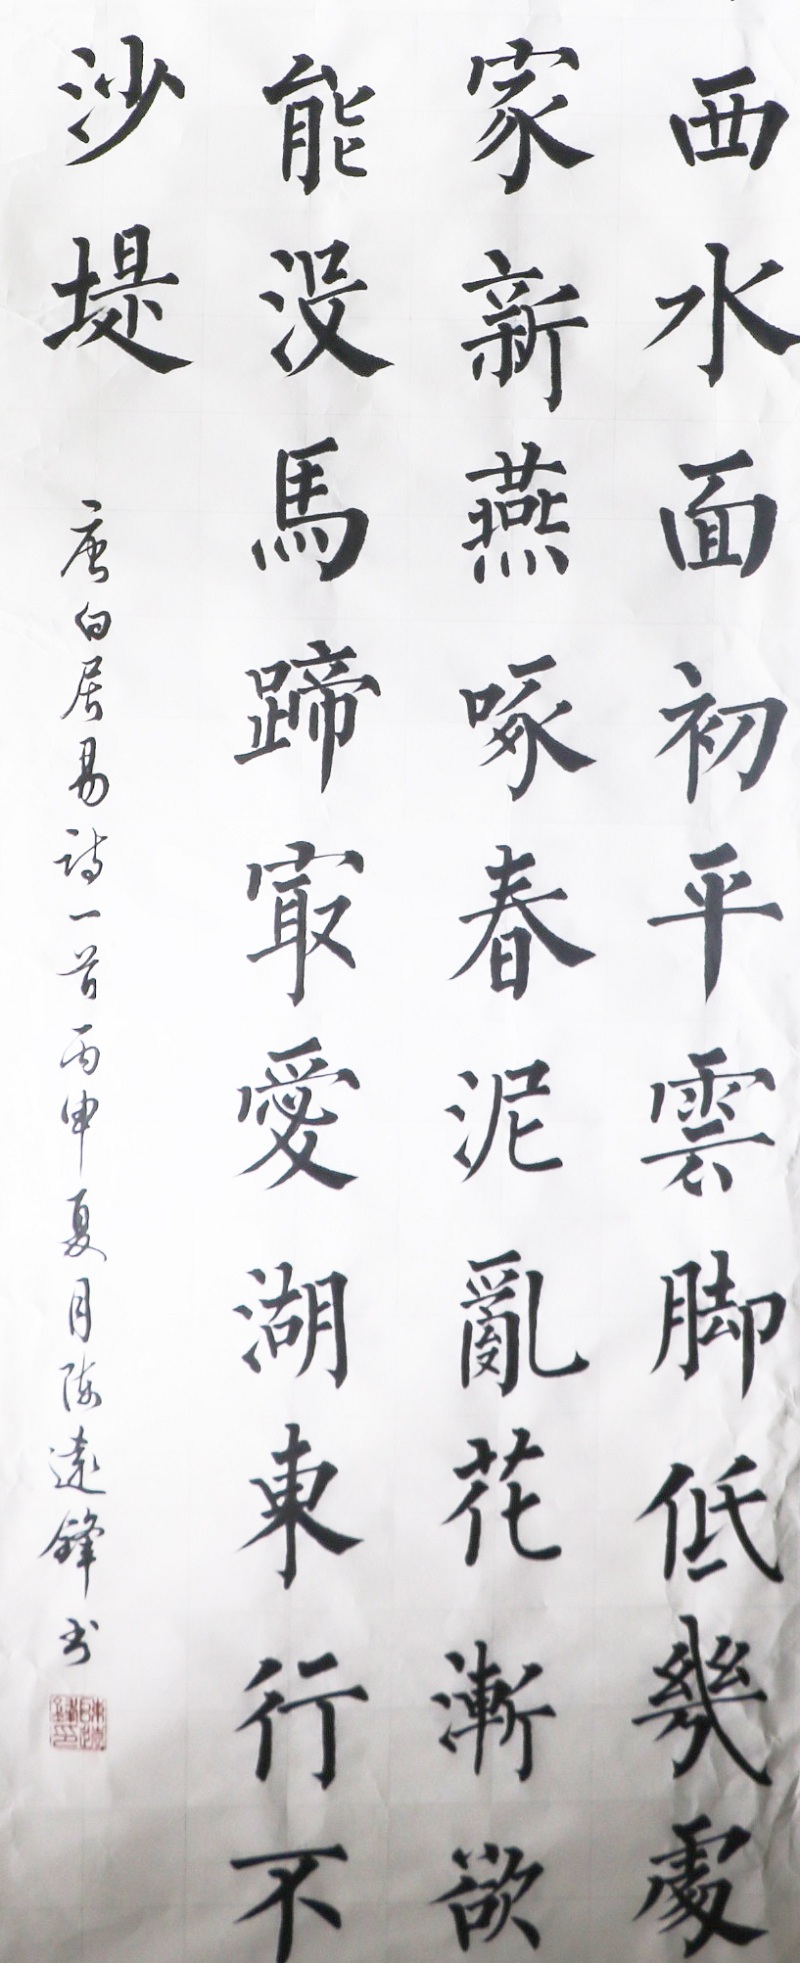 西水面初平雲脚低幾處
家新燕啄春泥亂花漸欲
能没馬蹄㝡愛湖東行不
沙堤
唐白居易詩一首丙申夏月陈遠鋒书
陳遠鋒印